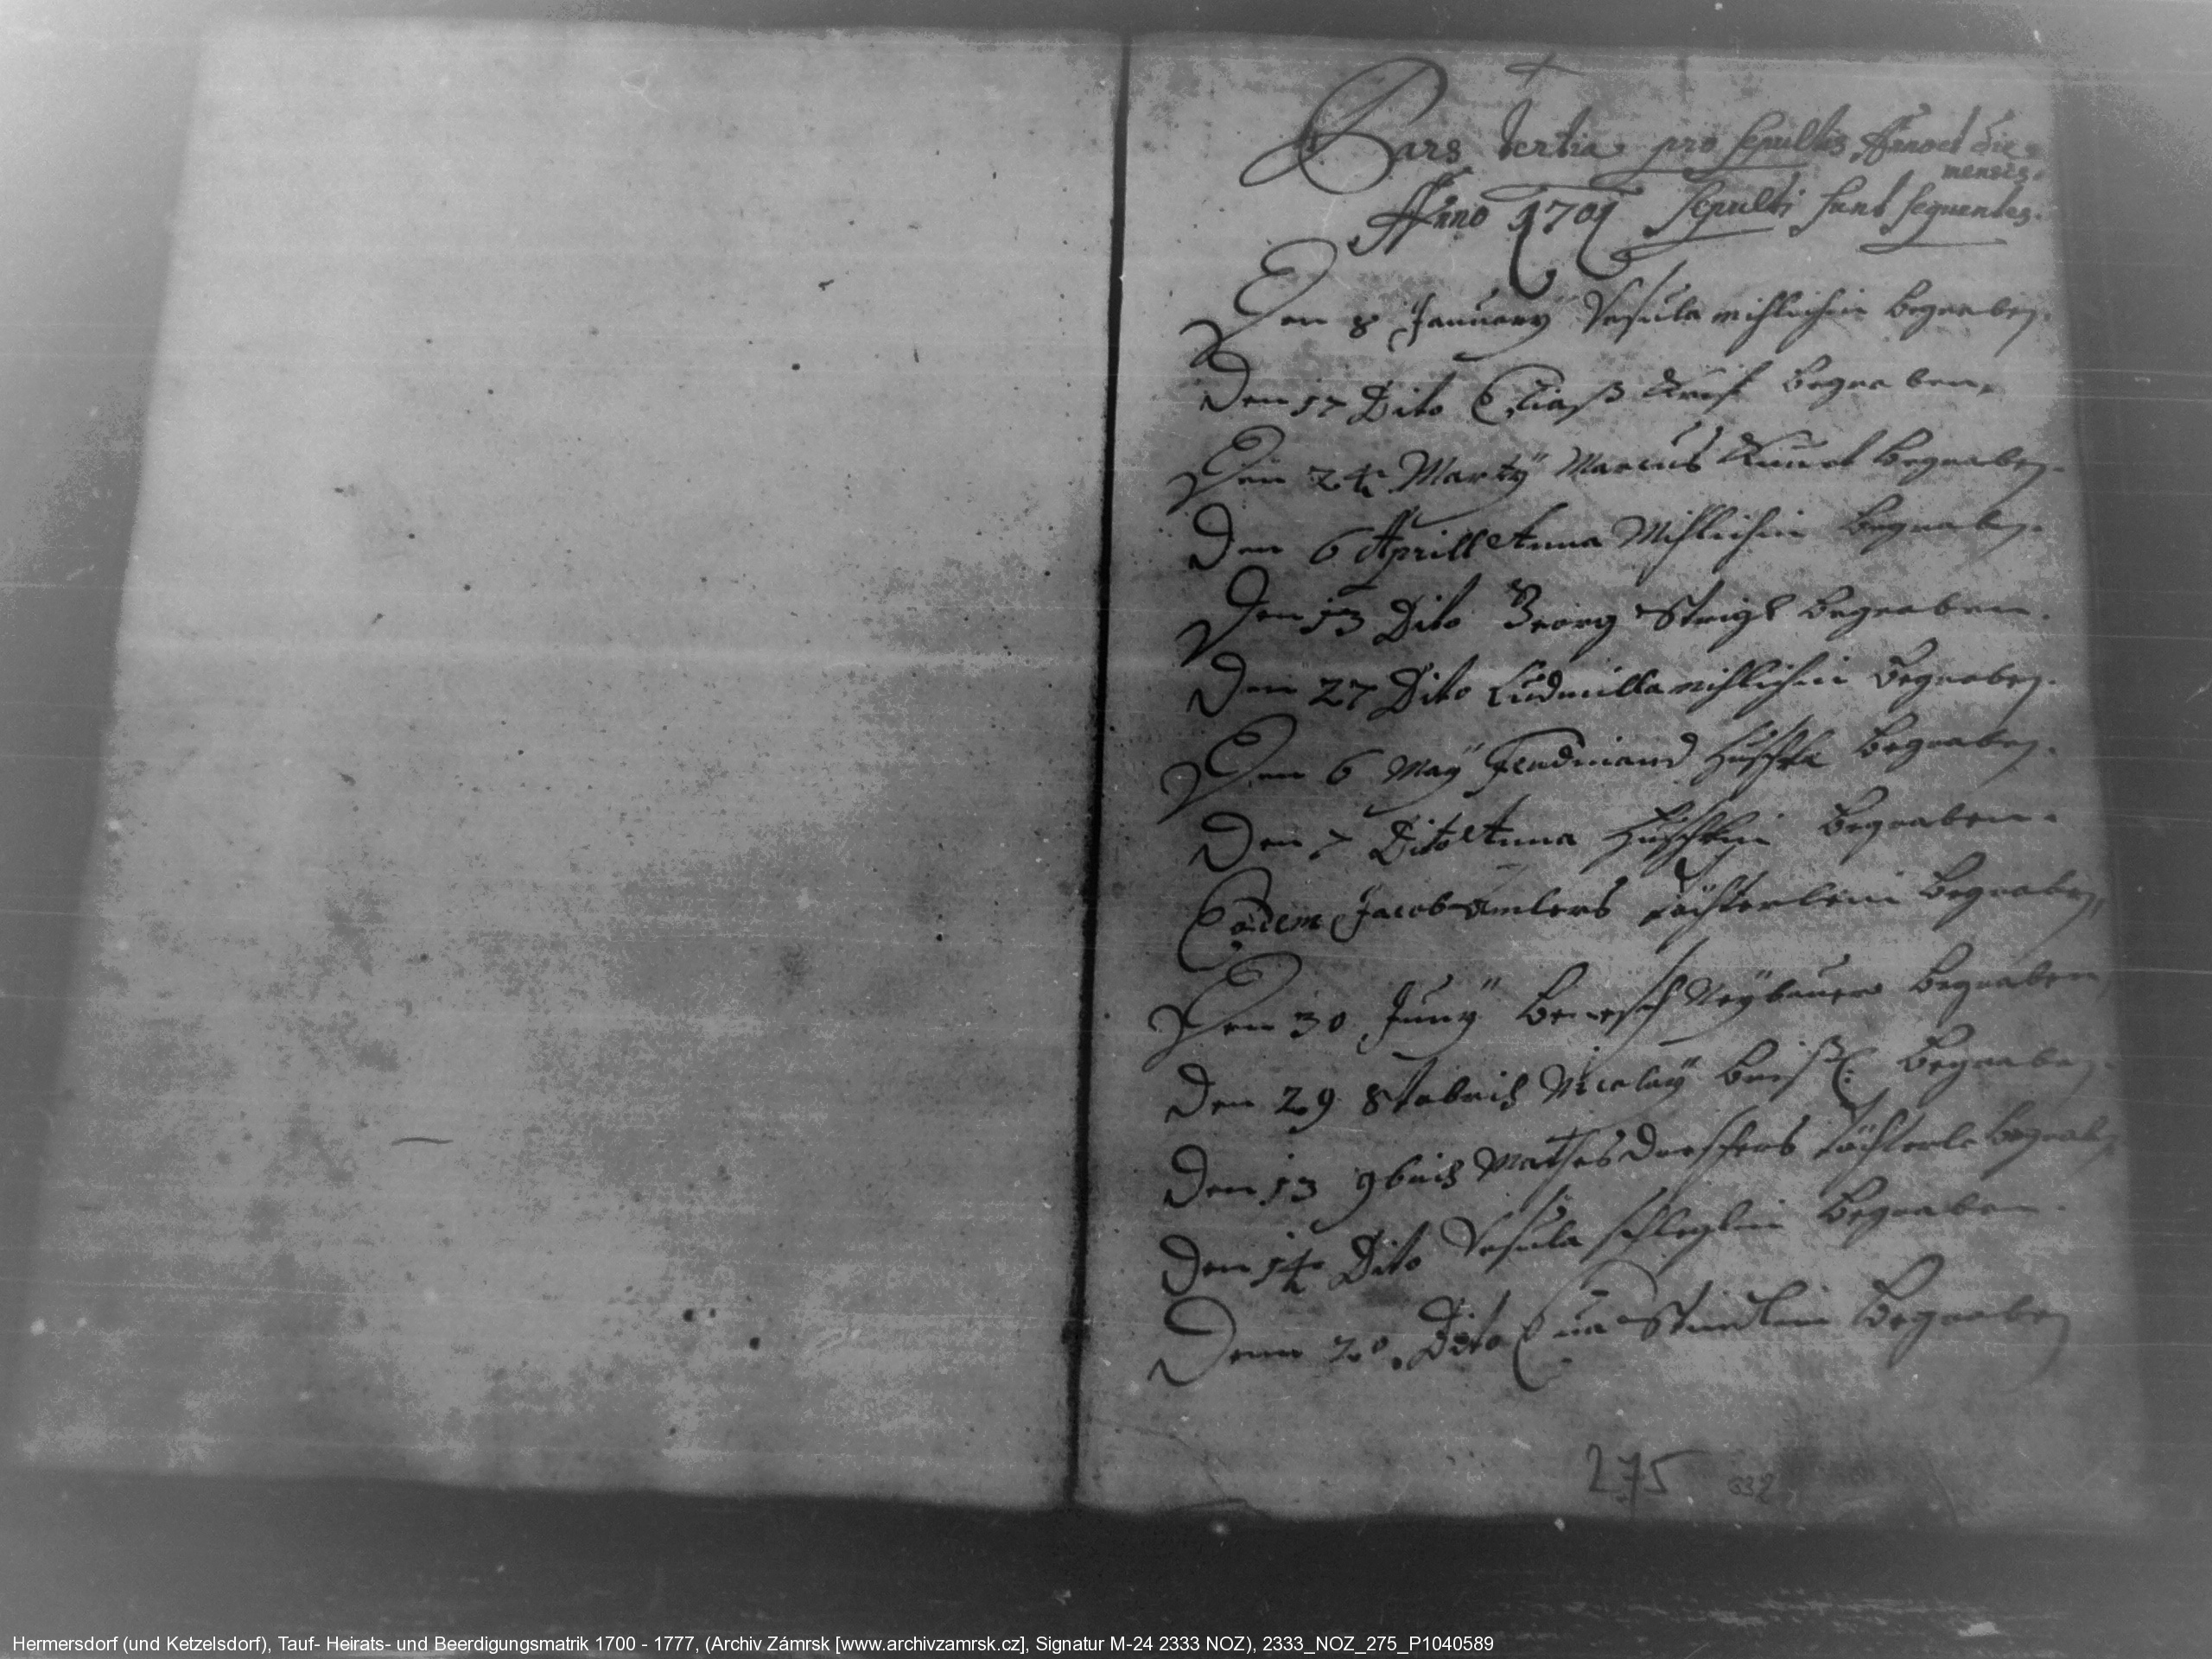 Pars tertia pro sepultis Anno et die
mensis.
Anno 1701 sepulti sunt sequentes.
Den 8 January Ursula begraben.
Den 17 Dito Eliaß begraben.
Den 24 Marty Marcus begraben.
Den 6 Aprill Anna begraben.
Den 13 Dito Georg begraben.
Den 27 Dito Ludmilla begraben.
Den 6 May Ferdinand begraben.
Den 7 Dito Anna begraben.
Eodem Jacob Amlers Töchterlein begraben,
Den 30 Juny Benesch Neÿbauer begraben,
Den 29 8tobris Nicolaÿ begraben.
Den 13 9bris Mathes Töchterle begraben
Den 14 Dito Ursula Schleglin begraben.
Denn 20. Dito Eva begraben
275 332
Hermersdorf (und Ketzelsdorf), Tauf- Heirats- und Beerdigungsmatrik 1700 - 1777, (Archiv Zámrsk [www.archivzamrsk.cz], Signatur M-24 2333 NOZ), 2333_NOZ_275_P1040589